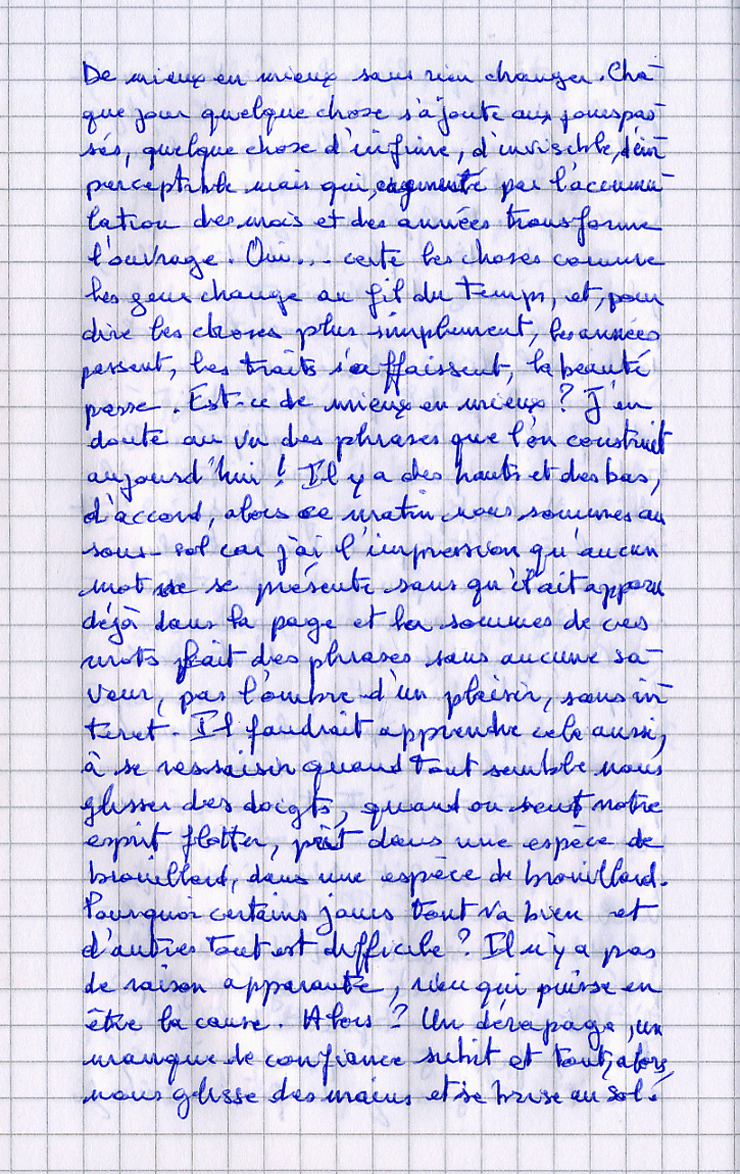 De mieux en mieux sans rien changer. Cha-
que jour quelque chose s'ajoute aux jours pas-
sés, quelque chose d'infime, d'invisible, d'im-
perceptible mais qui, augmenté par l'accumu-
lation des mois et des années transforme
l'ouvrage. Oui... certe les choses comme
les gens change au fil du temps, et, pour
dire les choses plus simplement, les années
passent, les traits s'affaissent, la beauté
passe. Est-ce de mieux en mieux ? J'en
doute au vu des phrases que l'on construit
aujourd'hui ! Il y a des hauts et des bas,
d'accord, alors ce matin nous sommes au
sous-sol car j'ai l'impression qu'aucun
mot ne se présente sans qu'il ait apparu
déjà dans la page et la sommes de ces
mots fait des phrases sans aucune sa-
veur, pas l'ombre d'un plaisir, sans in-
teret. Il faudrait apprendre cela aussi,
à se ressaisir quand tout semble nous
glisser des doigts, quand on sent notre
esprit flotter, dans une espèce de
brouillard, dans une espèce de brouillard.
Pourquoi certains jours tout va bien et
d'autres tout est difficile ? Il n'y a pas
de raison apparante, rien qui puisse en
être la cause. Alors ? Un dérapage, un
manque de confiance subit et tout, alors,
nous glisse des mains et se brise au sol.